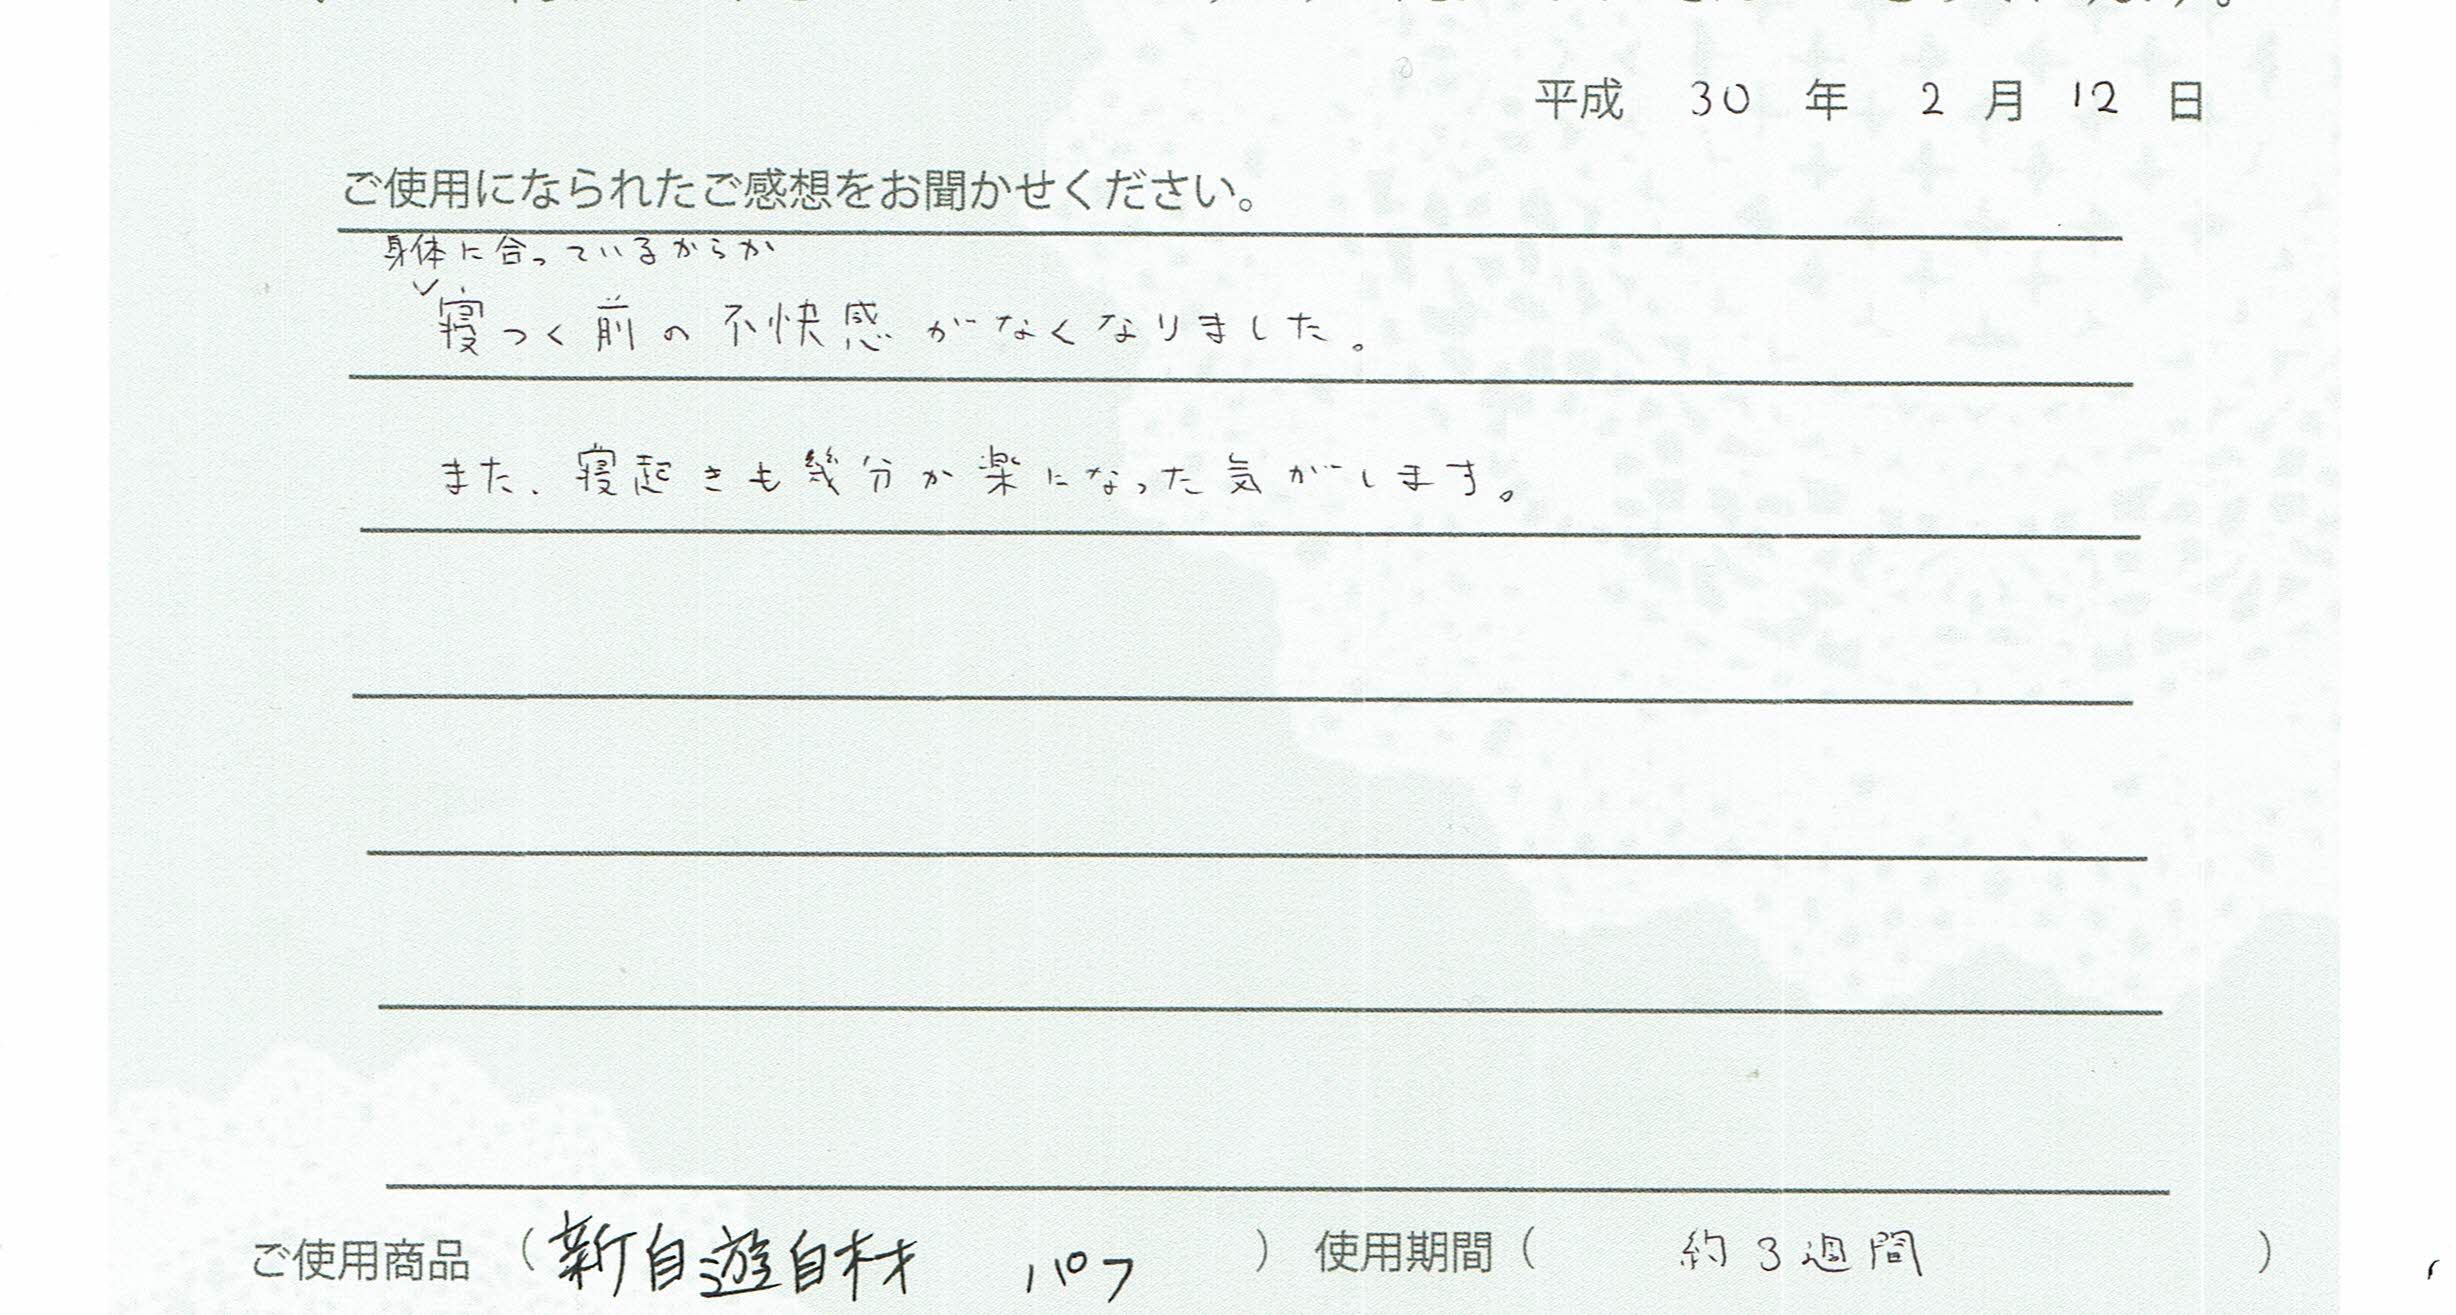 平成 30 年 2 月 12 日
ご使用になられたご感想をお聞かせください。
身体に合っているからか
寝つく前の不快感がなくなりました。
また、寝起きも幾分か楽になった気がします。
ご使用商品 (新自遊自材 パフ ) 使用期間 ( 約3週間 )